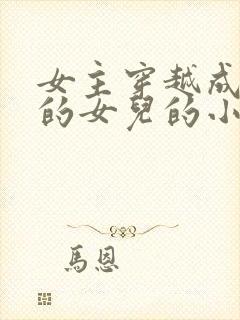 女主穿越成
的女兒的小
馬恩